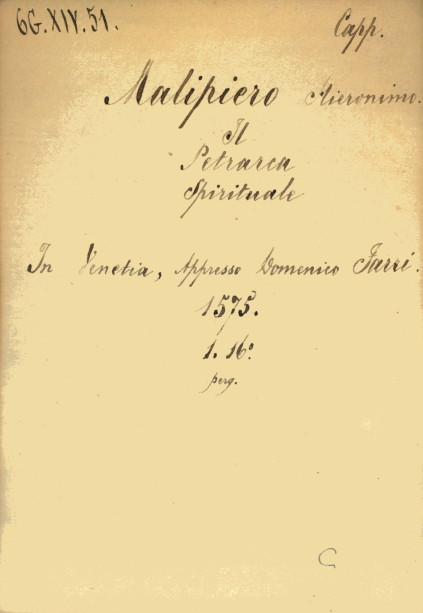 6G.XIV.51.
Capp.
Malipiero Hieronimo.
Il
Petrarca
Spirituale
In Venetia, Appresso Domenico Farri.
1575.
1. 16°
perg.
C